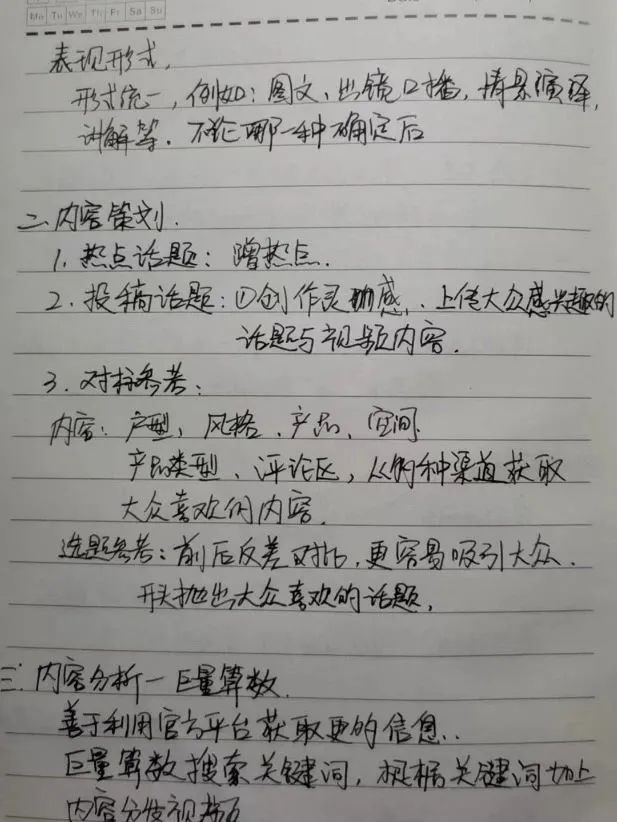 Mo Tu We Th Fr Sa Su
表现形式,
形式统一,例如:图文、出镜口播,情景演绎,
讲解等.不论哪一种确定后
二、内容策划.
1.热点话题:蹭热点.
2.投稿话题:①创作灵感.上传大众感兴趣的
话题与视频内容.
3.对标参考:
内容:户型,风格、产品、空间.
产品类型、评论区,从各种渠道获取
大众喜欢的内容.
选题参考:前后反差对比,更容易吸引大众.
开头抛出大众喜欢的话题,
三.内容分析—巨量算数.
善于利用官方平台获取更的信息..
巨量算数搜索关键词,根据关键词加上
内容分